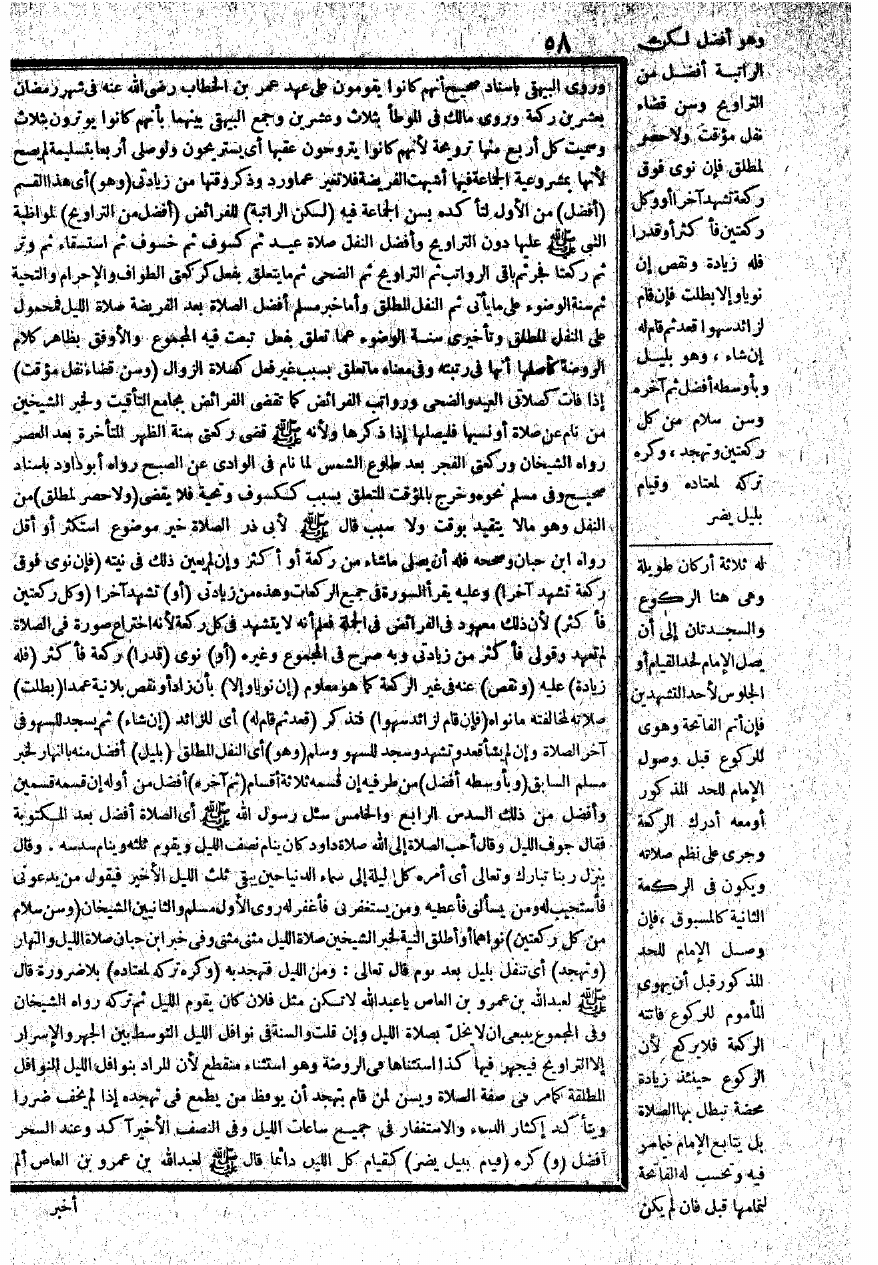 ٥٨
وروى البيهقى باسناد صحيح أنهم كانوا يقومون على عهد عمر بن الخطاب رضى الله عنه فى شهر رمضان
بعشرين ركعة وروى مالك فى الموطأ بثلاث وعشرين وجمع البيهقى بينهما بأنهم كانوا يوترون بثلاث
وسميت كل أربع منها ترويحة لأنهم كانوا يتروحون عقبها أى يستريحون ولو صلى أربعا بتسليمة لم يصح
لأنها بمشروعية الجماعة فيها أشبهت الفريضة فلا تغير عما ورد وذكر وقتها من زيادتى (وهو) أى هذا القسم
(أفضل) من الأول لتأكده بسن الجماعة فيه (لكن الراتبة) للفرائض (أفضل من التراويح) لمواظبة
النبى ﷺ عليها دون التراويح وأفضل النفل صلاة عيد ثم كسوف ثم خسوف ثم استسقاء ثم وتر
ثم ركعتا فجر ثم باقى الرواتب ثم التراويح ثم الضحى ثم ما يتعلق بفعل كركعتى الطواف والإحرام والتحية
ثم سنة الوضوء على ما يأتى ثم النفل المطلق وأما خبر مسلم أفضل الصلاة بعد الفريضة صلاة الليل فمحمول
على النفل المطلق وتأخيرى سنة الوضوء عما تعلق بفعل تبعت فيه المجموع والأوفق بظاهر كلام
الروضة كأصلها أنها فى رتبته وفى معناه ما تعلق بسبب غير فعل كصلاة الزوال (وسن قضاء نفل مؤقت)
إذا فات كصلاتى العيد والضحى ورواتب الفرائض كما تقضى الفرائض بجامع التأقيت ولخبر الشيخين
من نام عن صلاة أو نسيها فليصلها إذا ذكرها ولأنه ﷺ قضى ركعتى سنة الظهر المتأخرة بعد العصر
رواه الشيخان وركعتى الفجر بعد طلوع الشمس لما نام فى الوادى عن الصبح رواه أبو داود باسناد
صحيح وفى مسلم نحوه وخرج بالمؤقت المتعلق بسبب ككسوف وتحية فلا يقضى (ولا حصر لمطلق) من
النفل وهو مالا يتقيد بوقت ولا سبب قال ﷺ لأبى ذر الصلاة خير موضوع استكثر أو أقل
رواه ابن حبان وصححه فله أن يصلى ما شاء من ركعة أو أكثر وإن لم يعين ذلك فى نيته (فإن نوى فوق
ركعة تشهد آخرا) وعليه يقرأ السورة فى جميع الركعات وهذه من زيادتى (أو) تشهد آخرا (وكل ركعتين
فأكثر) لأن ذلك معهود فى الفرائض فى الجملة فعلم أنه لا يتشهد فى كل ركعة لأنه اختراع صورة فى الصلاة
لم تعهد وقولى فأكثر من زيادتى وبه صرح فى المجموع وغيره (أو) نوى (قدرا) ركعة فأكثر (فله
زيادة) عليه (ونقص) عنه فى غير الركعة كما هو معلوم (إن نويا وإلا) بأن زاد أو نقص بلا نية عمدا (بطلت)
صلاته لمخالفته ما نواه (فإن قام لزائد سهوا) فتذكر (قعد ثم قام له) أى للزائد (إن شاء) ثم يسجد للسهو فى
آخر الصلاة وإن لم يشأ قعد وتشهد وسجد للسهو وسلم (وهو) أى النفل المطلق (بليل) أفضل منه بالنهار لخبر
مسلم السابق (وبأوسطه أفضل) من طرفيه إن قسمه ثلاثة أقسام (ثم آخره) أفضل من أوله إن قسمه قسمين
وأفضل من ذلك السدس الرابع والخامس سئل رسول الله ﷺ أى الصلاة أفضل بعد المكتوبة
فقال جوف الليل وقال أحب الصلاة إلى الله صلاة داود كان ينام نصف الليل ويقوم ثلثه وينام سدسه . وقال
ينزل ربنا تبارك وتعالى أى أمره كل ليلة إلى سماء الدنيا حين يبقى ثلث الليل الأخير فيقول من يدعونى
فأستجيب له ومن يسألنى فأعطيه ومن يستغفرنى فأغفر له روى الأول مسلم والثانيين الشيخان (وسن سلام
من كل ركعتين) نواهما أو أطلق النية لخبر الشيخين صلاة الليل مثنى مثنى وفى خبر ابن حبان صلاة الليل والنهار
(وتهجد) أى تنفل بليل بعد نوم قال تعالى : ومن الليل فتهجد به (وكره تركه لمعتاده) بلا ضرورة قال
ﷺ لعبدالله بن عمرو بن العاص يا عبدالله لا تكن مثل فلان كان يقوم الليل ثم تركه رواه الشيخان
وفى المجموع ينبغى ان لا يخل بصلاة الليل وإن قلت والسنة فى نوافل الليل التوسط بين الجهر والإسرار
إلا التراويح فيجهر فيها كذا استثناها فى الروضة وهو استثناء منقطع لأن المراد بنوافل الليل النوافل
المطلقة كما مر فى صفة الصلاة ويسن لمن قام يتهجد أن يوقظ من يطمع فى تهجده إذا لم يخف ضررا
ويتأكد إكثار الدعاء والاستغفار فى جميع ساعات الليل وفى النصف الأخير آكد وعند السحر
أفضل (و) كره (قيام بليل يضر) كقيام كل الليل دائما قال ﷺ لعبدالله بن عمرو بن العاص ألم
أخبر
وهو أفضل لكن
الراتبة أفضل من
التراويح وسن قضاء
نفل مؤقت ولا حصر
لمطلق فإن نوى فوق
ركعة تشهد آخرا أو وكل
ركعتين فأكثر أو قدرا
فله زيادة ونقص إن
نويا وإلا بطلت فإن قام
لزائد سهوا قعد ثم قام له
إن شاء ، وهو بليل
وبأوسطه أفضل ثم آخره
وسن سلام من كل
ركعتين وتهجد ، وكره
تركه لمعتاده وقيام
بليل يضر
له ثلاثة أركان طويلة
وهى هنا الركوع
والسجدتان إلى أن
يصل الإمام لحد القيام أو
الجلوس لأحد التشهدين
فإن أتم الفاتحة وهوى
للركوع قبل وصول
الإمام للحد المذكور
أو معه أدرك الركعة
وجرى على نظم صلاته
ويكون فى الركعة
الثانية كالمسبوق ، فإن
وصل الإمام للحد
المذكور قبل أن يهوى
المأموم للركوع فاتته
الركعة فلا يركع لأن
الركوع حينئذ زيادة
محضة تبطل بها الصلاة
بل يتابع الإمام فيما هو
فيه وتحسب له الفاتحة
لتمامها قبل فان لم يكن